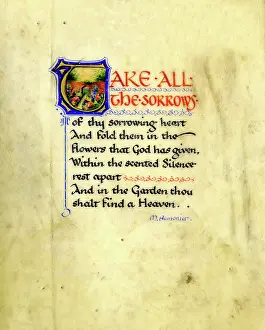 TAKE · ALL ·
the · SORROWS ·
of thy sorrowing heart
And fold them in the
flowers that God has given,
Within the scented Silence
rest apart
And in the Garden thou
shalt find a Heaven..